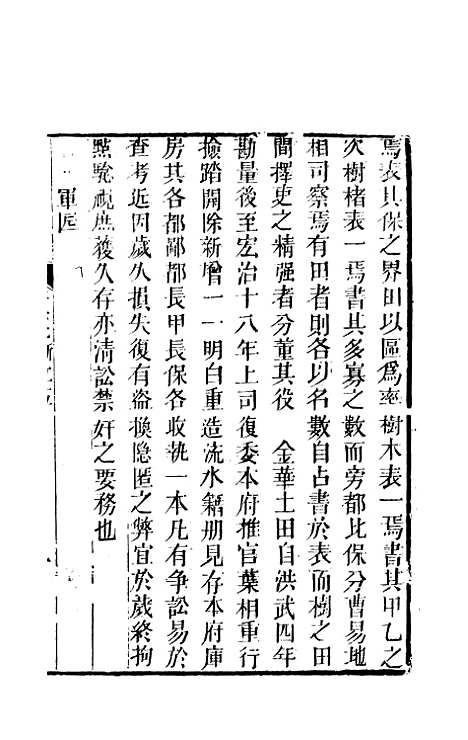 焉表其保之界田以區爲率樹木表一焉書其甲乙之
次樹楮表一焉書其多寡之數而旁都比保分曹易地
相司察焉有田者則各以名數自占書於表而樹之田
間擇吏之精强者分董其役　金華土田自洪武四年
勘量後至宏治十八年上司復委本府推官葉相重行
撿踏開除新增一一明白重造流水籍册見存本府庫
房其各都鄙都長甲長保各收執一本凡有争訟易於
查考近因歲久損失復有盗換隐匿之弊宜於歲終拘
㸃驗視庶獲久存亦清訟禁奸之要務也
軍匠